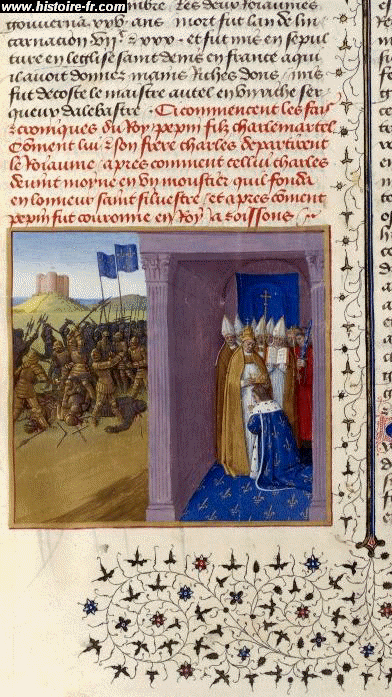 www.histoire-fr.com
mbre. Les deux Royaumes
gouverna xxvj. ans mort fut lan de lin
carnacion vijc. et xxx. et fut mis en sepul
ture en leglise saint denis en france a qui
il avoit donnez mains riches dons. mis
fut decoste le maistre autel en vng riche ser
queu dalebastre. Ci commencent les fais
et croniques du Roy pepin filz charlemartel.
Coment lui et son frere charles departirent
le Royaume. apres comment cellui charles
devint moyne en vn moustier quil fonda
en lonneur saint siluestre. et apres coment
pepin fut couronne en Roy a soissons